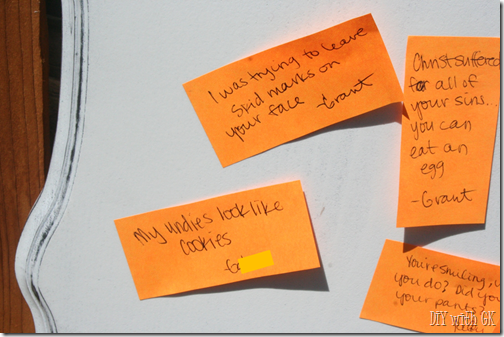 I was trying to leave
skid marks on
your face -Grant
Christ suffered
for all of
your sins..
you can
eat an
egg
-Grant
My undies look like
cookies
-G
You're smiling,
you do? Did you
your pants?
DIY with GK